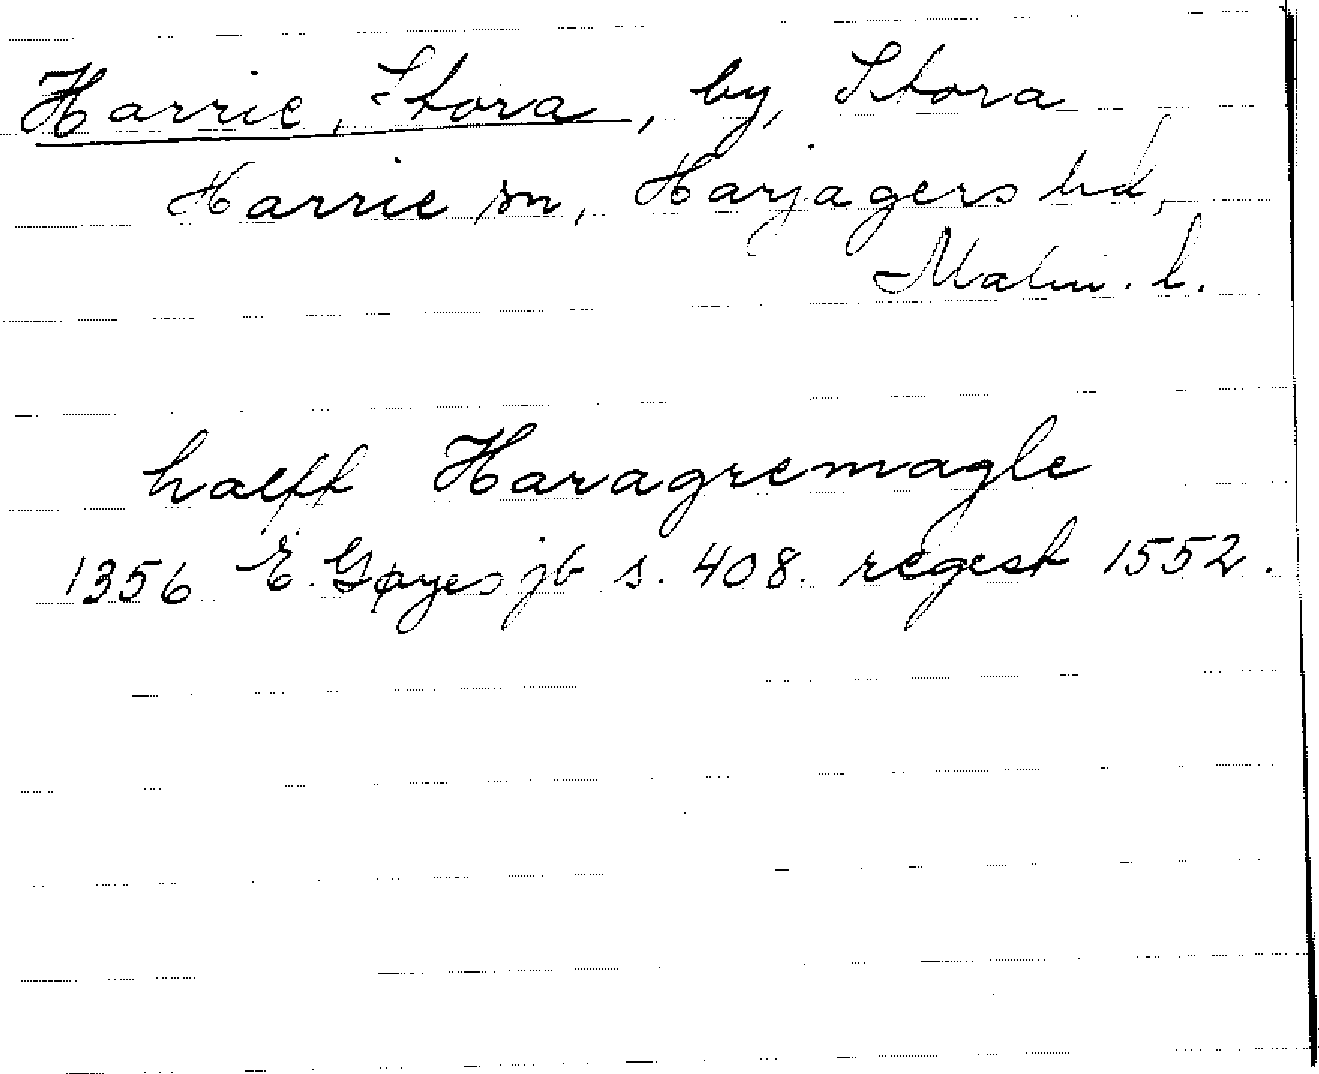 Harrie, Stora, by, Stora
Harrie sn, Harjagers hd,
Malm. l.
halff Haragremagle
1356 E. Gøyes jb s. 408. regest 1552.